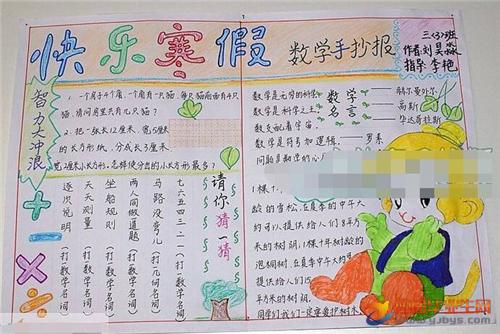 快乐寒假
数学手抄报
三〈3〉班
作者:刘昊淼
指导:李艳
智力大冲浪
1.一个房子4个角,一个角有一只猫,每只猫前面有4只
猫,请问房里共有几只猫?
2.把一张长12厘米,宽5厘米
的长方形纸,分成长3厘米
宽2厘米小长方形,怎样使分出的小长方形最多?
请你猜一猜
七六五四三二一(打一数学名词)
马路没弯儿(打一几何名词)
两人同做道题(打一数学名词)
坐船规则(打一数学名词)
天天测量(打一数学名词)
逐次说明(打一数学名词)
数学名言
数学是无穷的科学 赫尔曼外尔
数学是科学之王 高斯
数支配着宇宙. 毕达哥拉斯
数学是符号加逻辑. 罗素
问题是数学的心
1棵
龄的雪松,在夏季的中午大
约可以提供给人们8平方
米的树荫,1棵10年树龄的
泡桐树,在夏季中午大约可
提供给人们
平方米的树荫.
同学们我们一定要爱护树木
www.yjbys.com